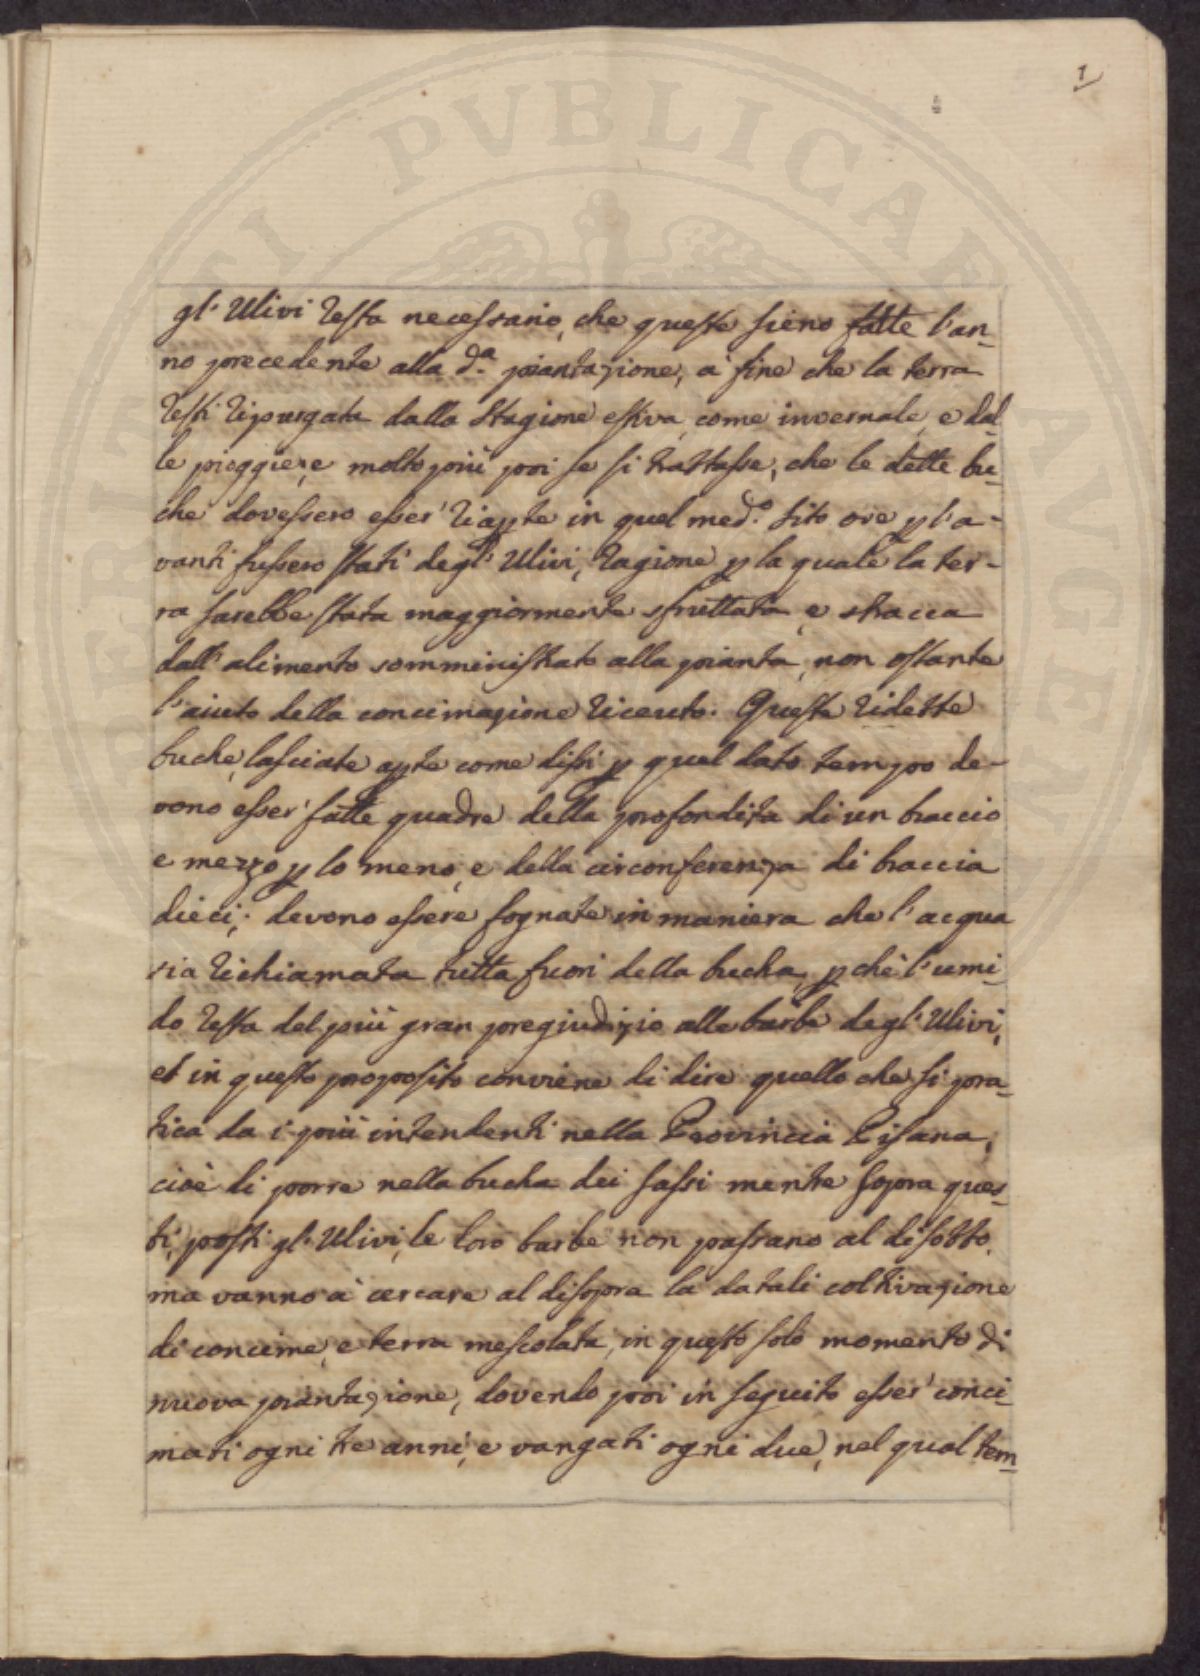 1
gl' Ulivi resta necessario, che queste sieno fatte l'an-
no precedente alla d.ª piantazione, à fine che la terra
resti ripurgata dalla Stagione estiva, come invernale, e dal-
le pioggie, e molto più poi se si trattasse, che le dette bu-
che dovessero esser' riapte in quel med.º sito ove p l'a-
vanti fussero stati degl' Ulivi, ragione p la quale la ter-
ra sarebbe stata maggiormente sfruttata, e stracca
dall'alimento somministrato alla pianta, non ostante
l'aiuto della concimazione riceuto. Queste ridette
buche, lasciate apte come dissi p quel dato tempo de-
vono esser' fatte quadre della profondità di un braccio
e mezzo p lo meno, e della circonferenza di braccia
dieci; devono essere fognate in maniera che l'acqua
sia richiamata tutta fuori della bucha, p chè l'umi-
do resta del più gran pregiudizio alle barbe degl' Ulivi,
et in questo proposito conviene di dire quello che si pra-
tica da i più intendenti nella Provincia Pisana,
cioè di porre nella bucha dei sassi mentre sopra ques-
ti, posti gl' Ulivi, le loro barbe non passano al disotto,
ma vanno à cercare al disopra la da tali coltivazione
di concime, e terra mescolata, in questo solo momento di
nuova piantazione, dovendo poi in seguito esser' conci-
mati ogni tre anni, e vangati ogni due, nel qual tem-
PERITATI PUBLICAE AUGEN